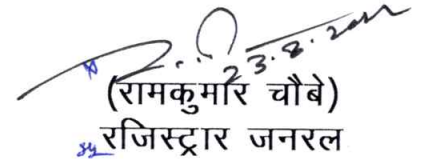 23.8.2022
(रामकुमार चौबे)
रजिस्ट्रार जनरल